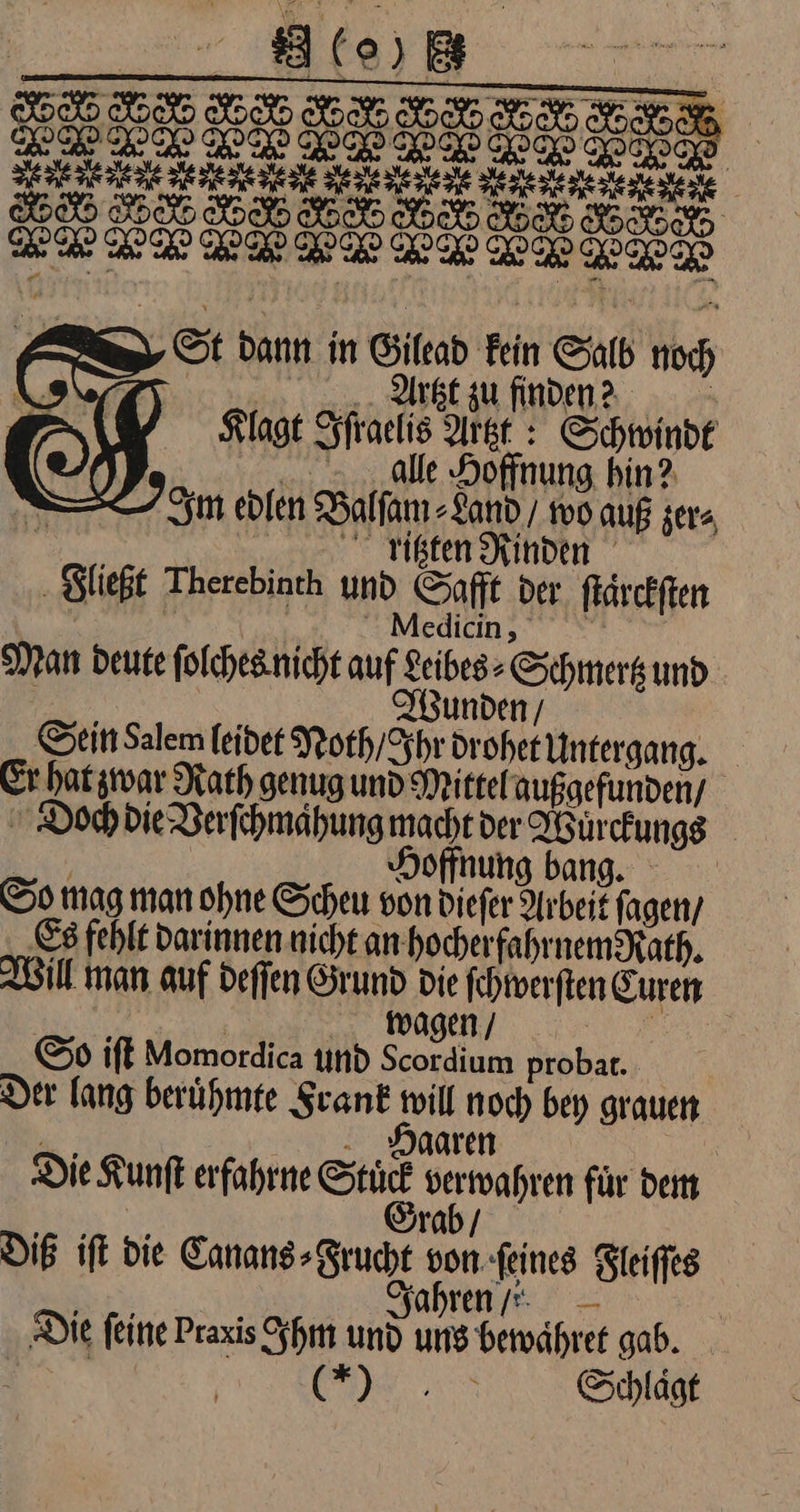 (o)
ISt dann in Gilead kein Salb noch
Artzt zu finden?
Klagt Iſraelis Artzt : Schwindt
alle Hoffnung hin?
Im edlen Balſam-Land / wo auß zer-
ritzten Rinden
Fließt Therebinth und Safft der ſtaͤrckſten
Medicin,
Man deute ſolches nicht auf Leibes-Schmertz und
Wunden /
Sein Salem leidet Noth/Ihr drohet Untergang.
Er hat zwar Rath genug und Mittel außgefunden/
Doch die Verſchmaͤhung macht der Wuͤrckungs
Hoffnung bang.
So mag man ohne Scheu von dieſer Arbeit ſagen/
Es fehlt darinnen nicht an hocherfahrnem Rath.
Will man auf deſſen Grund die ſchwerſten Curen
wagen /
So iſt Momordica und Scordium probat.
Der lang beruͤhmte Frank will noch bey grauen
Haaren
Die Kunſt erfahrne Stuͤck verwahren fuͤr dem
Grab /
Diß iſt die Canans-Frucht von ſeines Fleiſſes
Jahren /
Die ſeine Praxis Ihm und uns bewaͤhret gab.
(*) Schlaͤgt